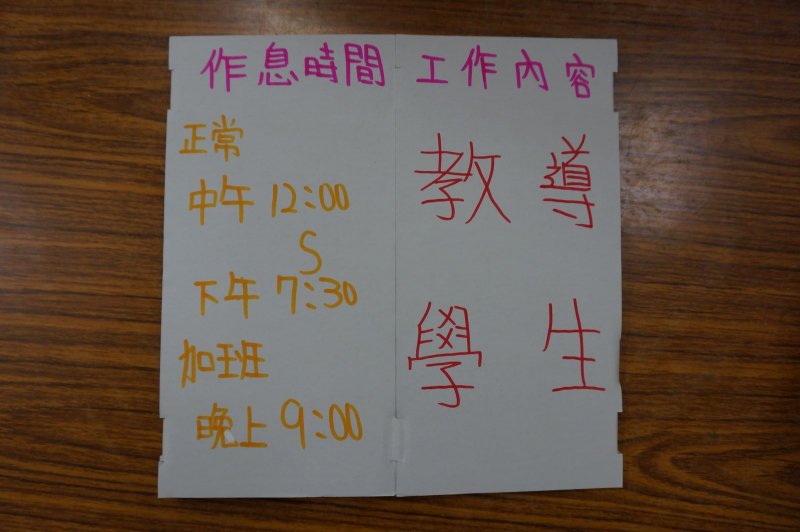 作息時間
正常
中午12:00
S
下午7:30
加班
晚上9:00
工作內容
教導
學生